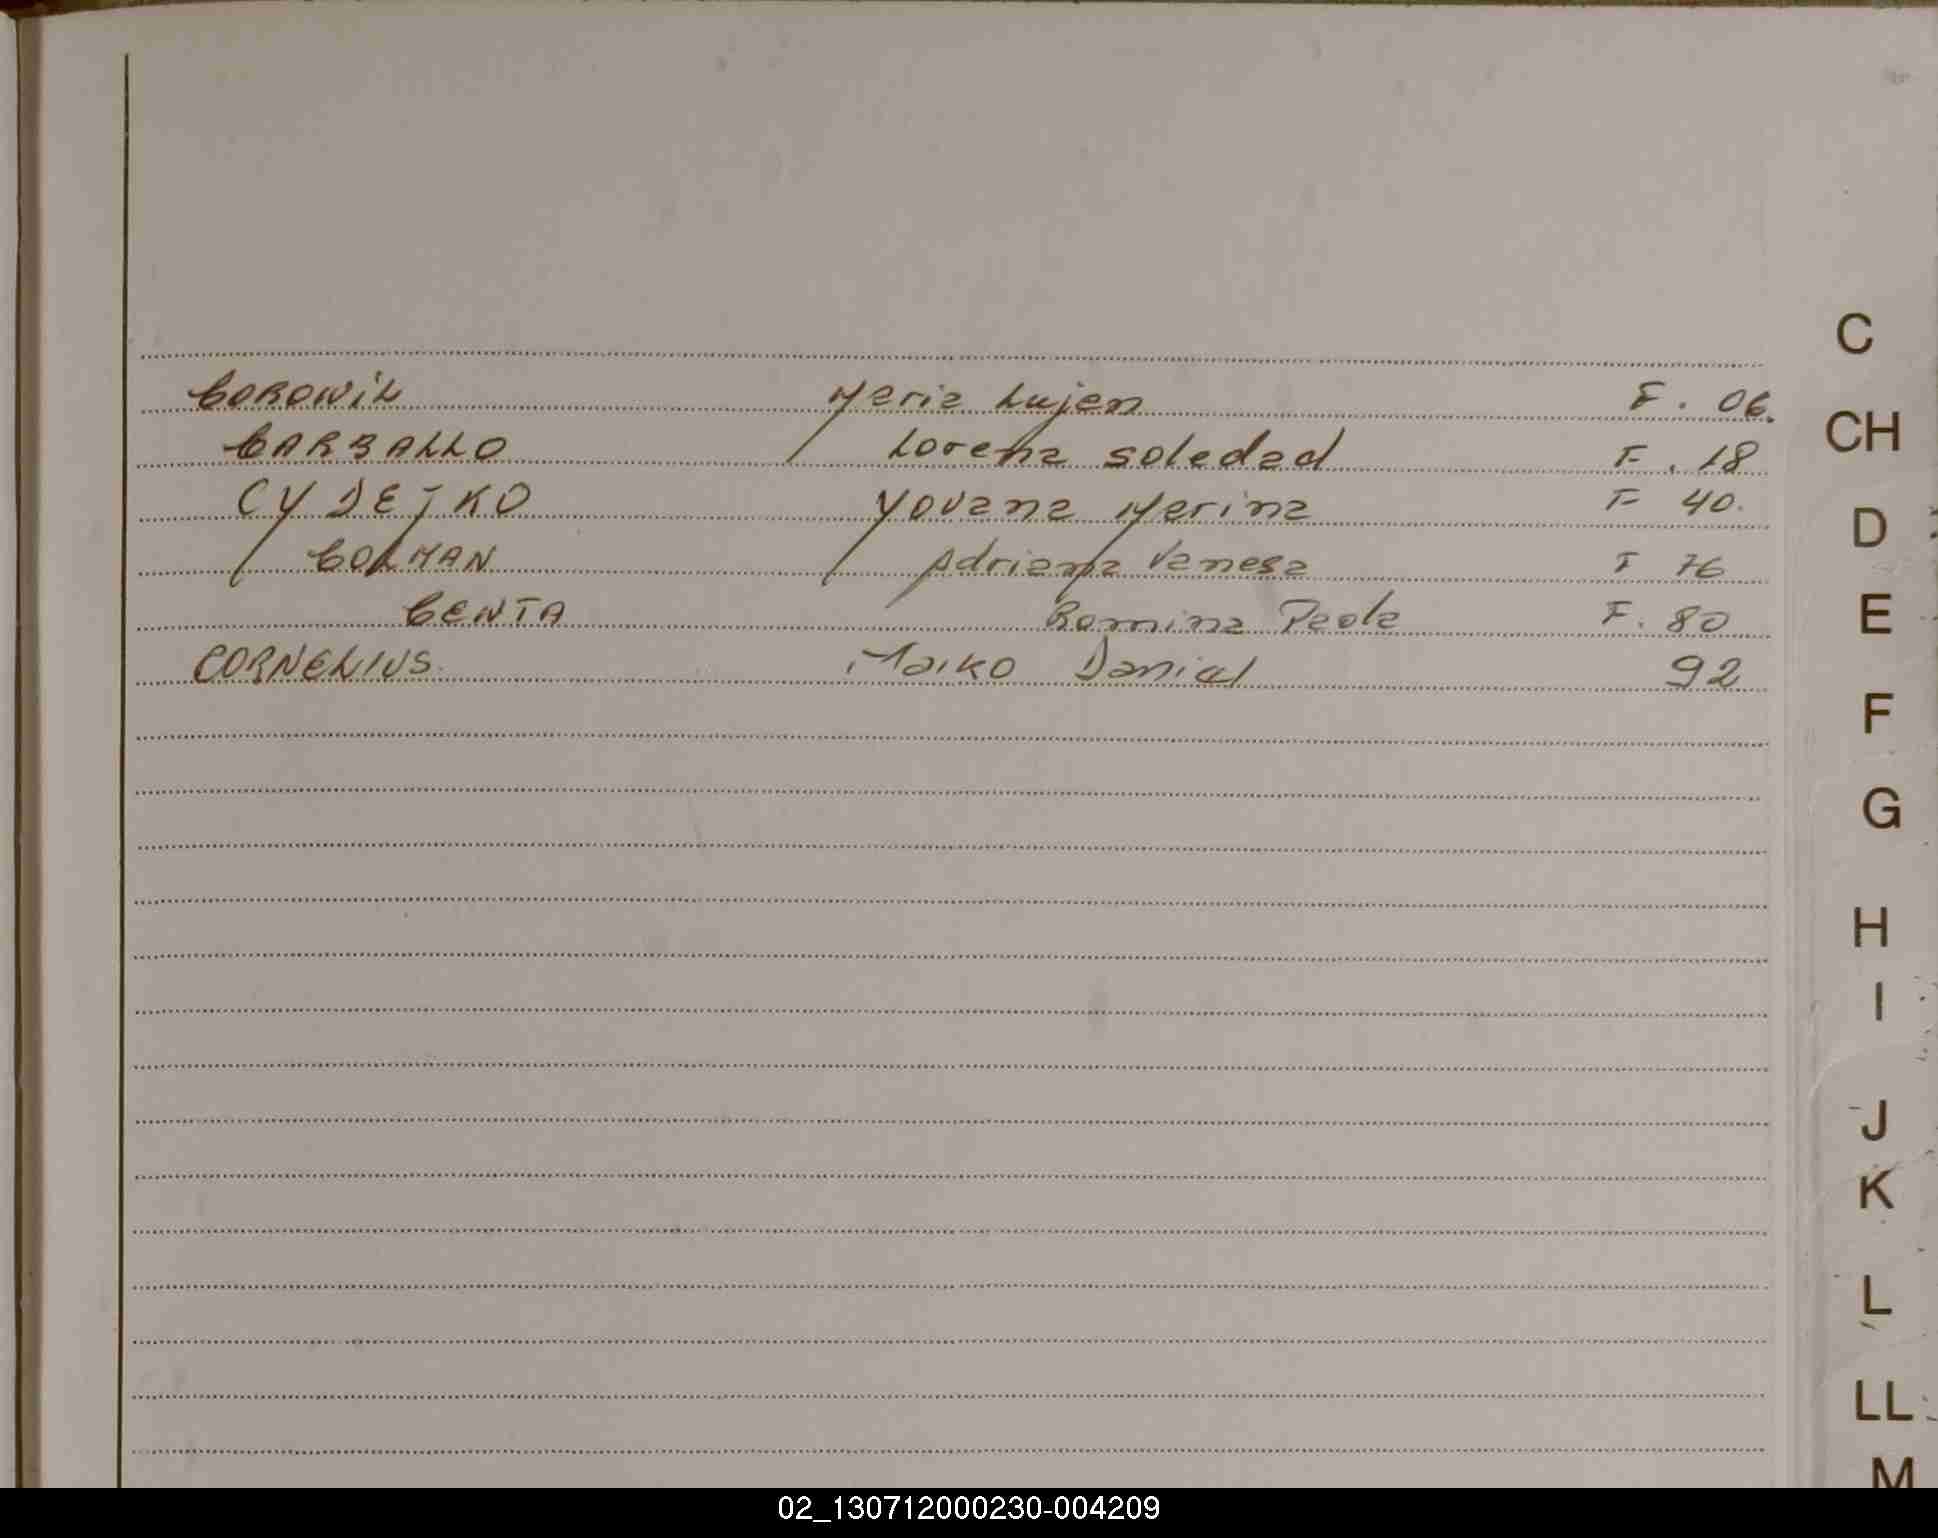 COROWiL Maria Lujan F. 06.
CARBALLO Lorena Soledad F. 18
CYDEJKO Yovana Marina F 40.
COLMAN Adriana Vanesa F 76
CENTA Romina Paola F. 80
CORNELIUS. Maiko Daniel 92
C
CH
D
E
F
G
H
I
J
K
L
LL
M
02_130712000230-004209